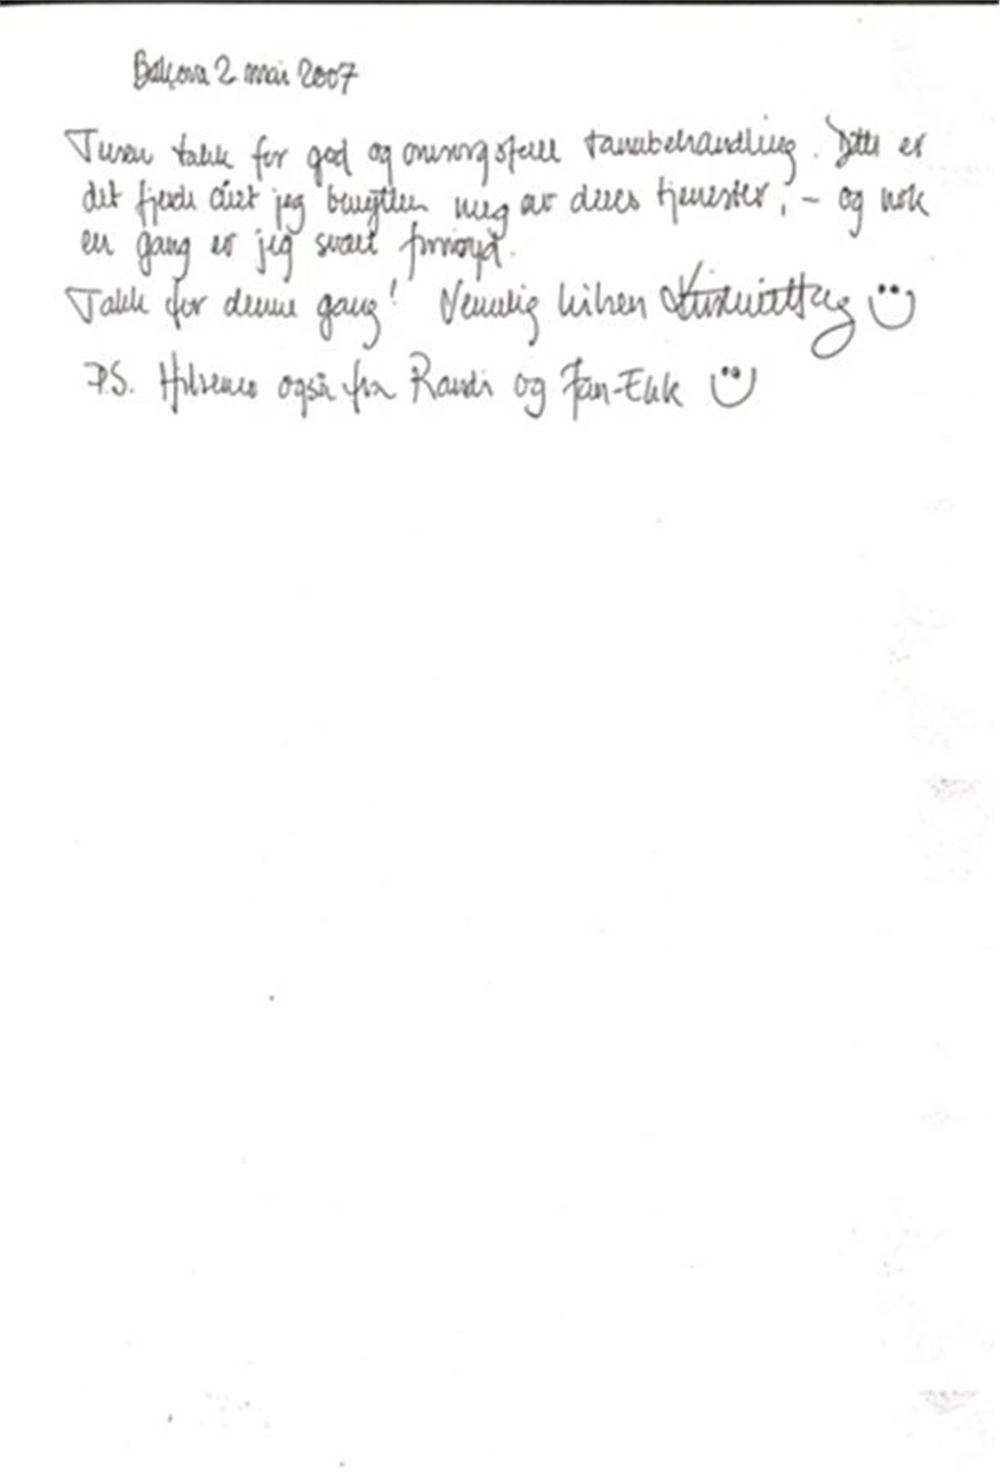 Balçova 2 mai 2007
Tusen takk for god og omsorgsfull tannbehandling. Dette er
det fjerde året jeg benytter meg av deres tjenester, - og nok
en gang er jeg svært fornøyd.
Takk for denne gang! Vennlig hilsen
P.S. Hilsener også fra Randi og Jan-Erik